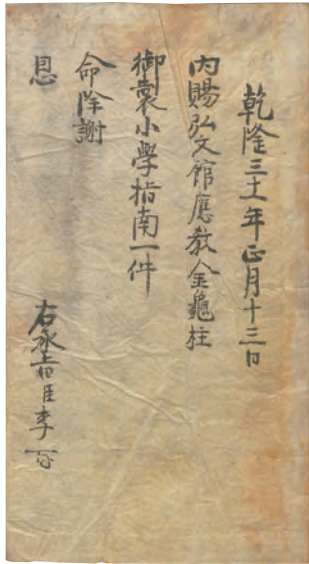 乾隆三十一年正月十三日
內賜弘文館應教金龜柱
御製小學指南一件
命除謝
恩
右承旨臣李